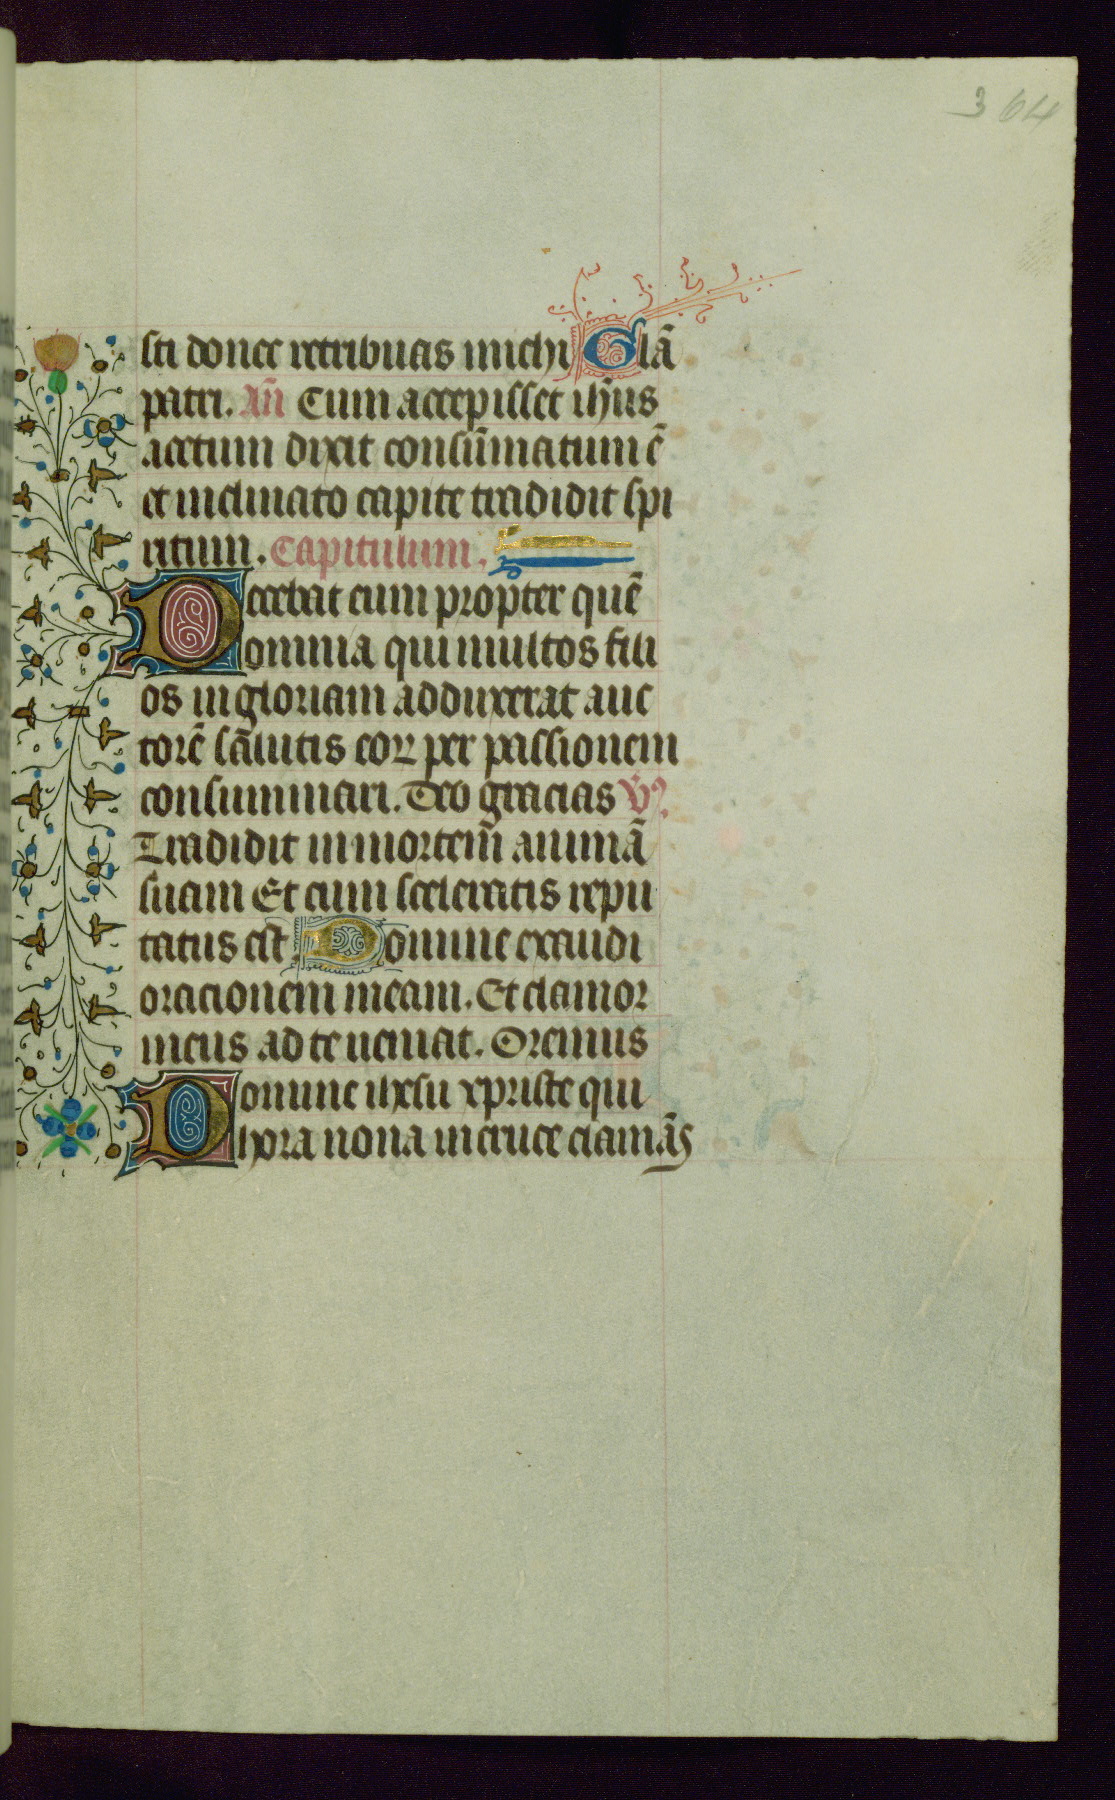 364
sti donec retribuas michi Glã
patri. Añ Cum accepisset ihũs
acetum dixit consũmatum ẽ
et inclinato capite tradidit spi
ritum. Capitulum.
Decebat eum propter quẽ
omnia qui multos fili
os in gloriam adduxerat auc
torẽ sãlutis eoꝝ per passionem
consummari. Deo gracias v̾ꝰ.
Tradidit in mortem̃ animã
suam Et cum sceleratis repu
tatus est. Domine exaudi
oracionem meam. Et clamor
meus ad te ueniat. Oremus
Domine ihesu xpriste qui
hora nona in cruce clamãs